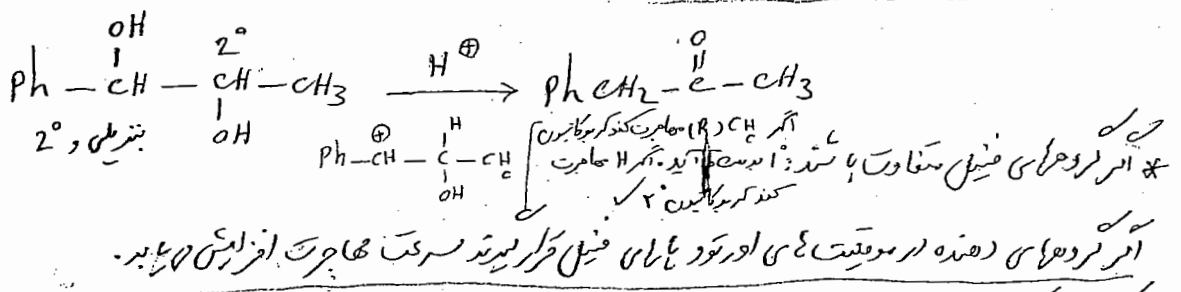 OH
Ph — CH — CH — CH3 → PhCH2 — C — CH3
2° H⊕ O
بنزیلی و 2° OH
Ph — CH — C — CH3
⊕ H OH
اگر CH3 (R) مهاجرت کند کربوکاتیون
1° بدست می آید. اگر H مهاجرت
کند کربوکاتیون 2° ✓
* اگر گروههای فنیل متفاوت باشند:
اگر گروههای دهنده در موقعیت های اورتو و یا پارای فنیل قرار گیرند سرعت مهاجرت افزایش می یابد.